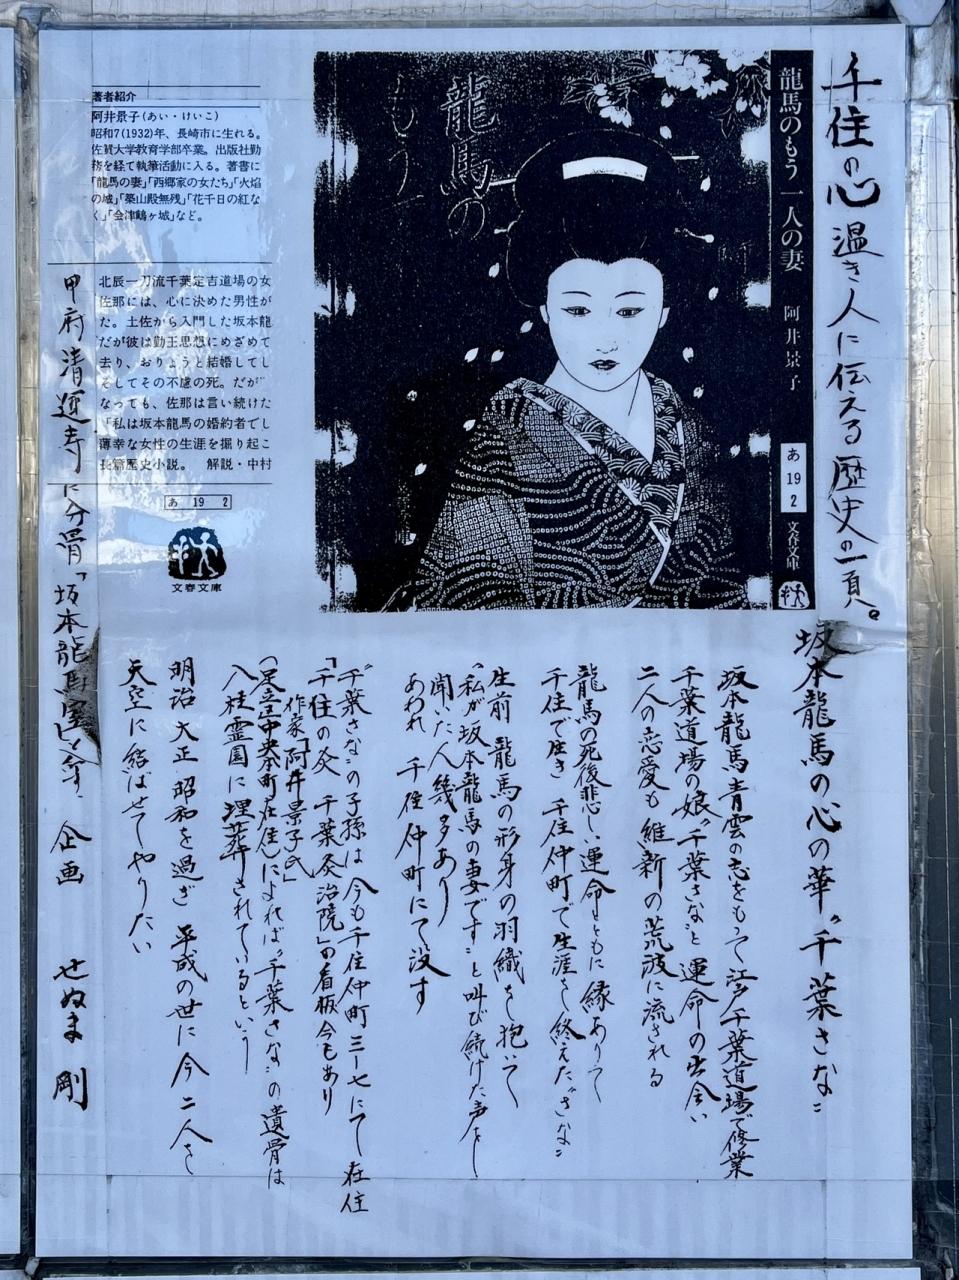 千住の心温き人に伝える歴史の一頁。
龍馬のもう一人の妻 阿井景子
あ
19
2
文春文庫
龍馬の
もう一
著者紹介
阿井景子(あい・けいこ)
昭和7(1932)年、長崎市に生れる。
佐賀大学教育学部卒業。出版社勤
務を経て執筆活動に入る。著書に
「龍馬の妻」「西郷家の女たち」「火焰
の城」「築山殿無残」「花千日の紅な
く」「会津鶴ヶ城」など。
北辰一刀流千葉定吉道場の女
佐那には、心に決めた男性が
た。土佐から入門した坂本龍
だが彼は勤王思想にめざめて
去り、おりょうと結婚してし
そしてその不慮の死。だが
なっても、佐那は言い続けた
「私は坂本龍馬の婚約者でし
薄幸な女性の生涯を掘り起こ
長篇歴史小説。 解説・中村
あ 19 2
文春文庫
坂本龍馬の心の華〝千葉さな〟
坂本龍馬青雲の志をもって江戸千葉道場で修業
千葉道場の娘〝千葉さな〟と運命の出会い
二人の恋愛も維新の荒波に流される
龍馬の死後悲しい運命とともに縁ありて
千住で生き 千住仲町で生涯を終えた〝さな〟
生前 龍馬の形身の羽織を抱いて
〝私が坂本龍馬の妻です〟と叫び続けた声を
聞いた人幾多あり
あわれ 千住仲町にて没す
〝千葉さな〟の子孫は今も千住仲町三ー七にて在住
「千住の灸 千葉灸治院」の看板今もあり
作家「阿井景子氏」
(足立中央本町在住)によれば〝千葉さな〟の遺骨は
八柱霊園に埋葬されているという
明治 大正 昭和を過ぎ 平成の世に今 二人を
天空に結ばせてやりたい
甲府清運寺に分骨「坂本龍馬室と 企画 せぬま 剛